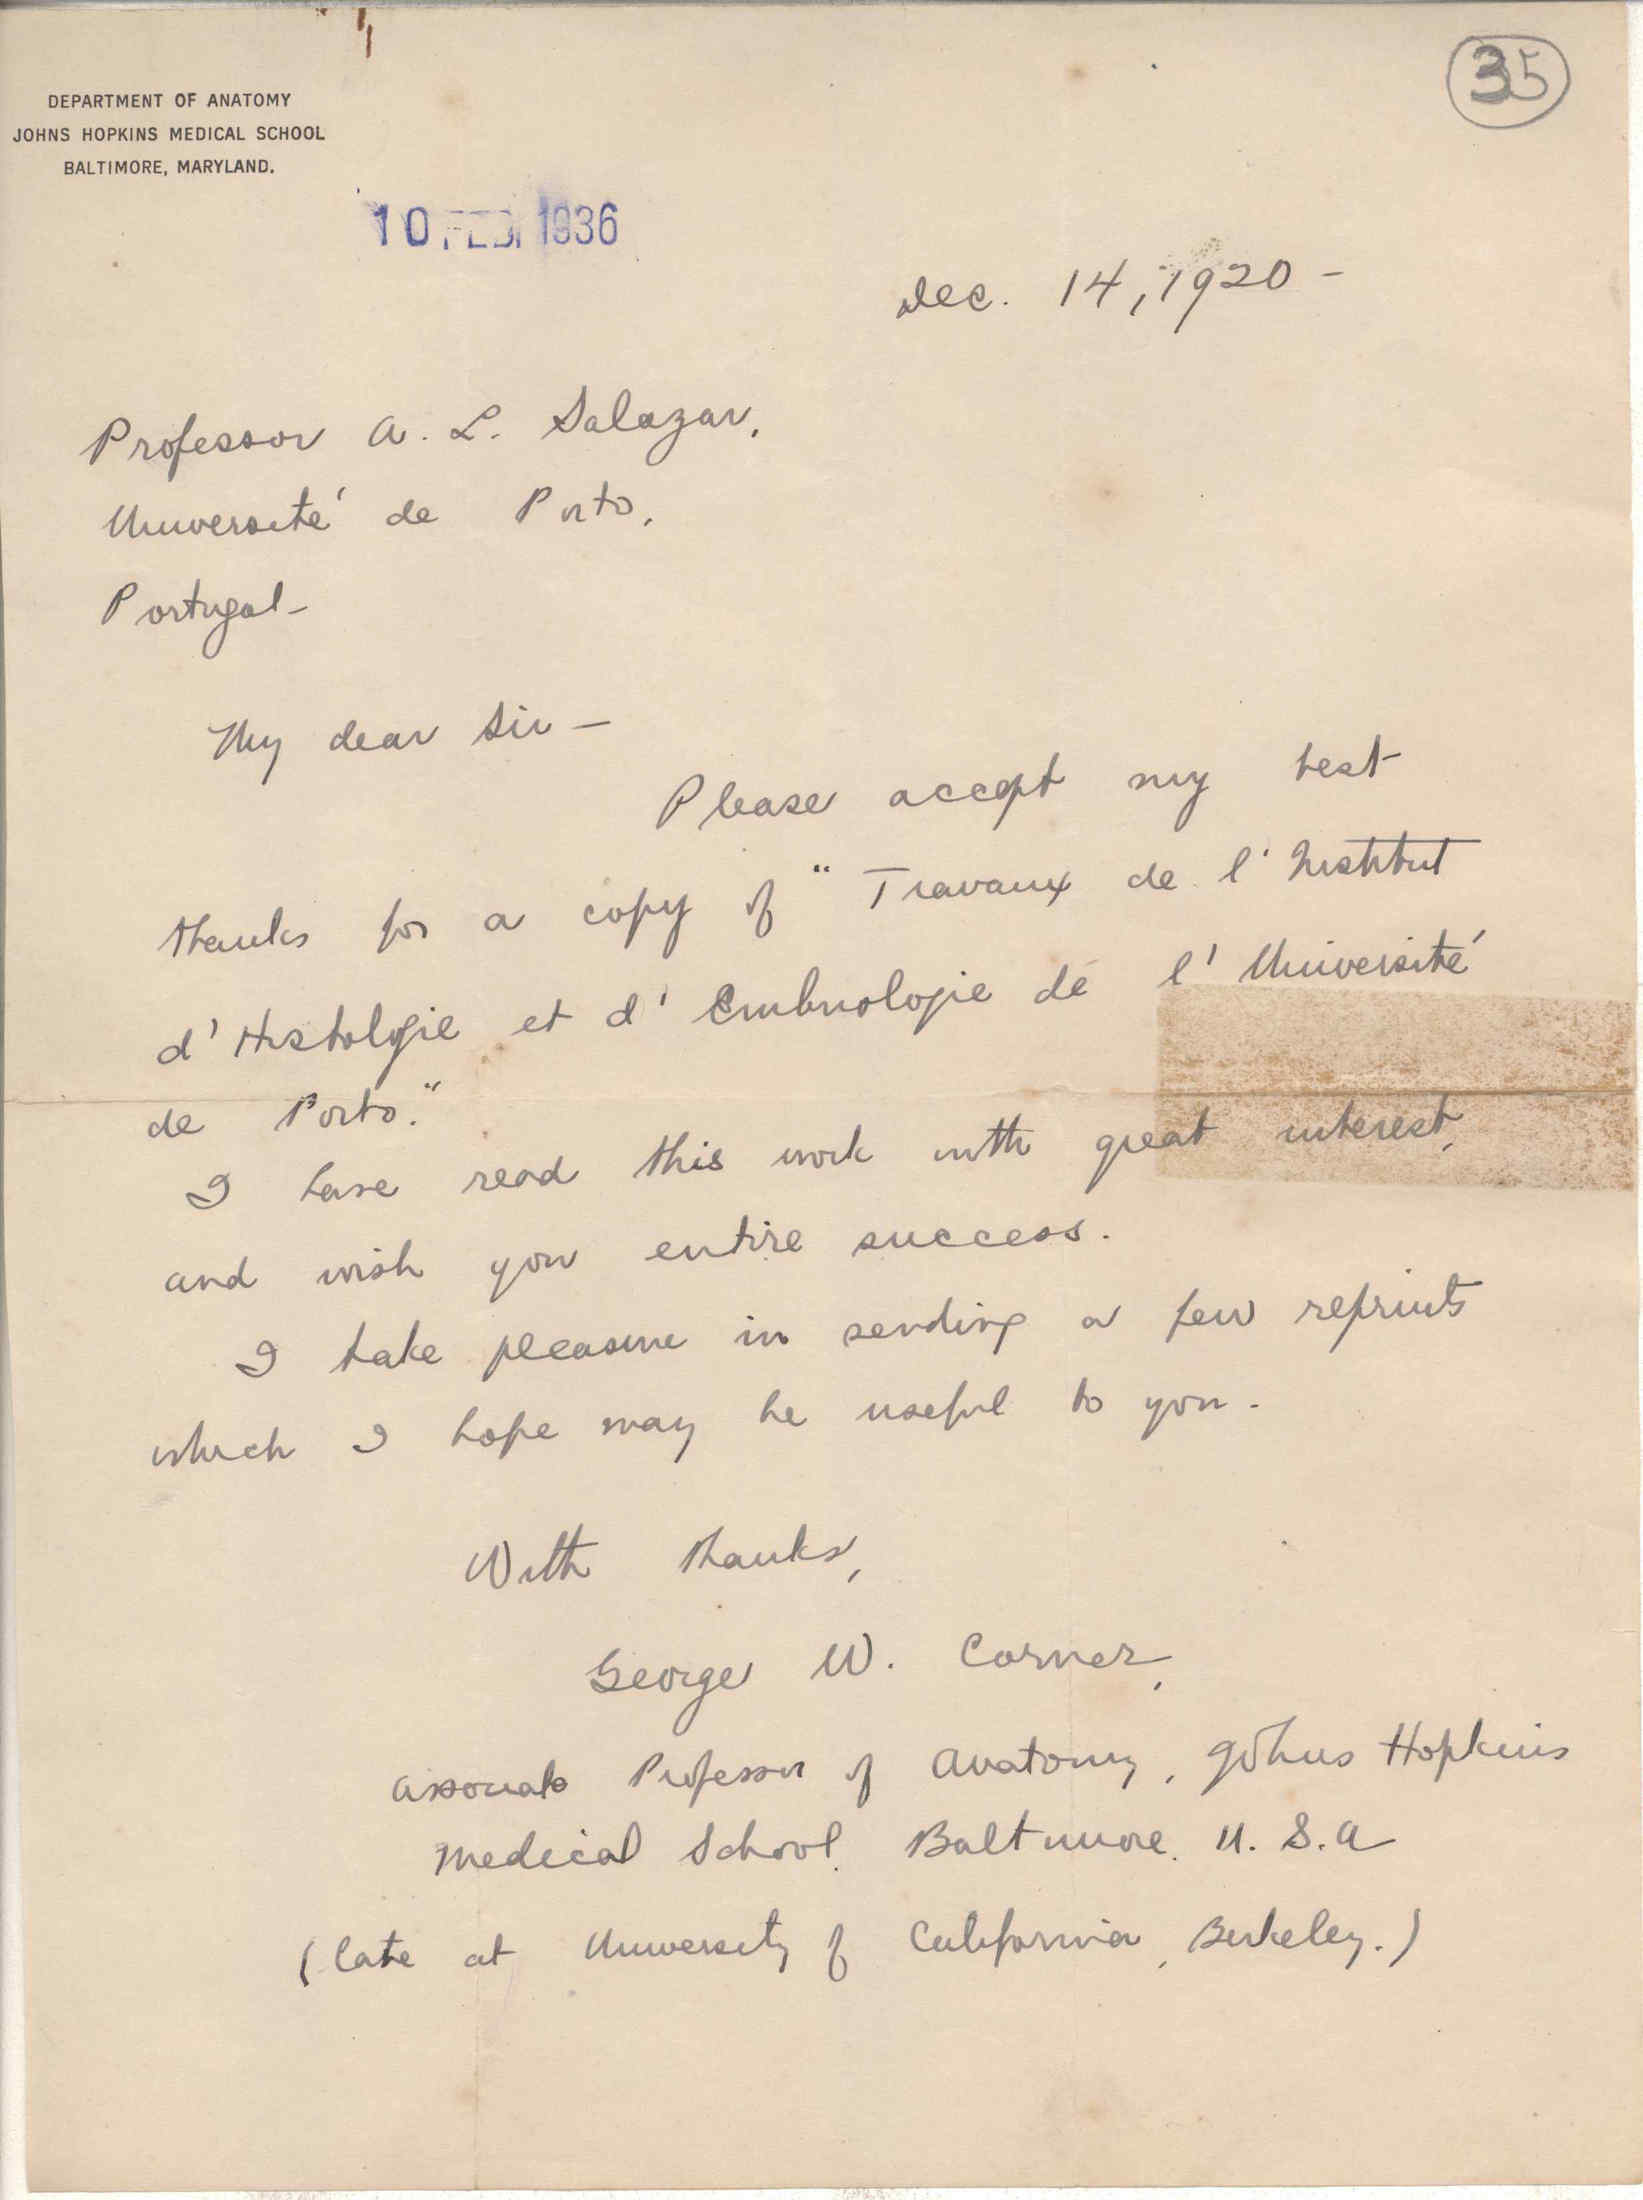 35
DEPARTMENT OF ANATOMY
JOHNS HOPKINS MEDICAL SCHOOL
BALTIMORE, MARYLAND.
10 FEB. 1936
Dec. 14, 1920 -
Professor A. L. Salazar,
Université de Porto,
Portugal -
My dear Sir -
Please accept my best
thanks for a copy of "Travaux de l'Institut
d'Histologie et d'Embryologie de l'Université
de Porto."
I have read this work with great interest,
and wish you entire success.
I take pleasure in sending a few reprints
which I hope may be useful to you.
With thanks,
George W. Corner,
Associate Professor of Anatomy, Johns Hopkins
Medical School, Baltimore, U. S. A
(late at University of California, Berkeley.)